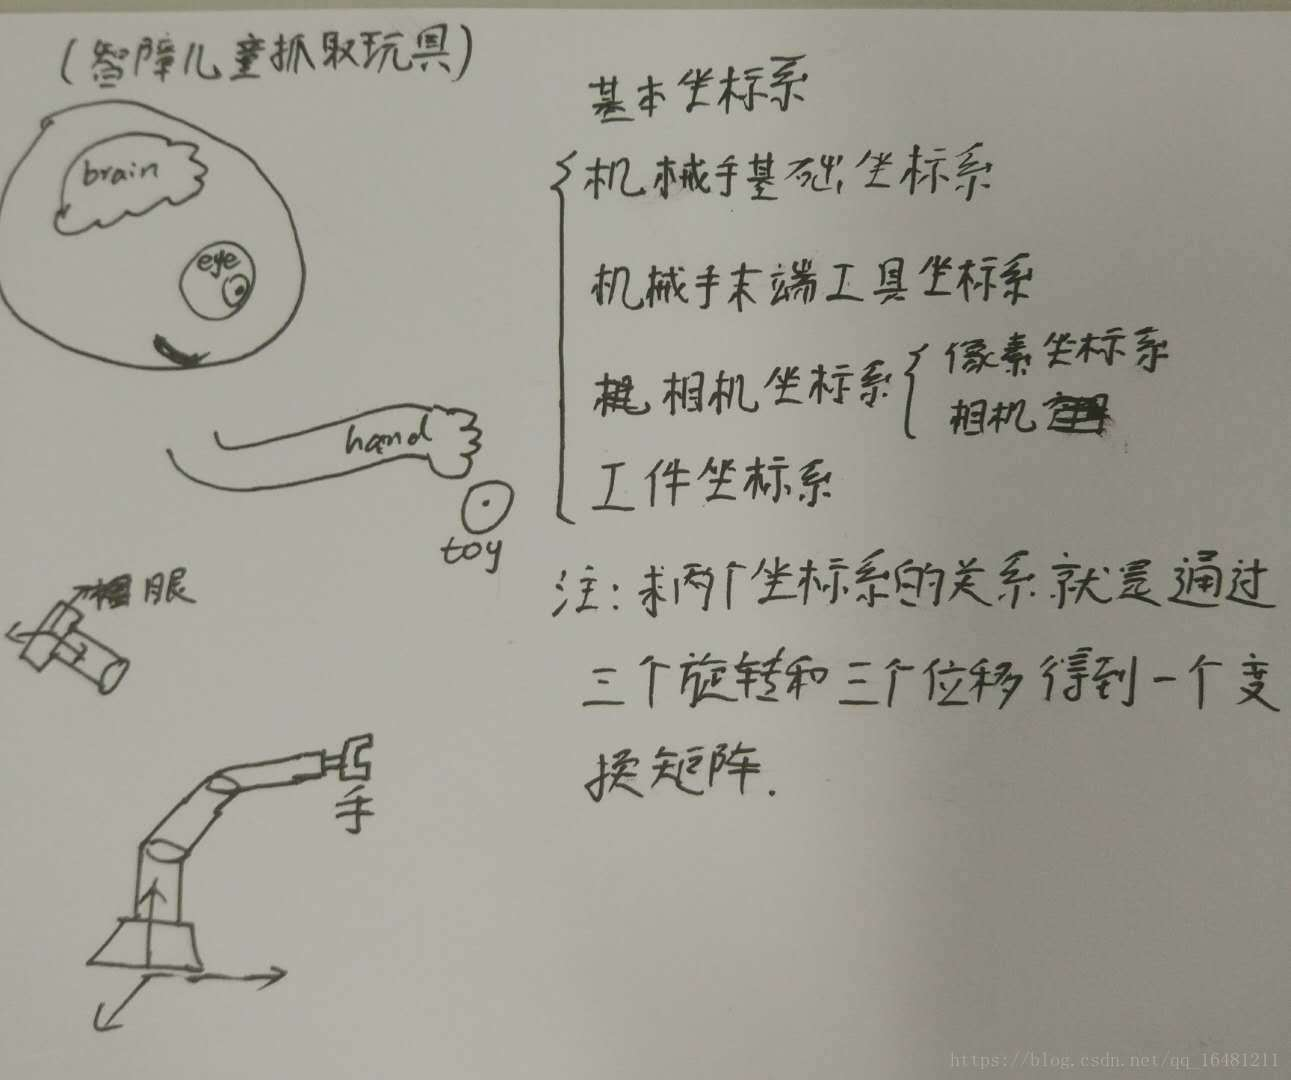 (智障儿童抓取玩具)
brain
eye
hand
toy
眼
手
基本坐标系
机械手基础坐标系
机械手末端工具坐标系
相机坐标系
像素坐标系
相机
工件坐标系
注：求两个坐标系的关系就是通过
三个旋转和三个位移得到一个变
换矩阵.
https://blog.csdn.net/qq_16481211